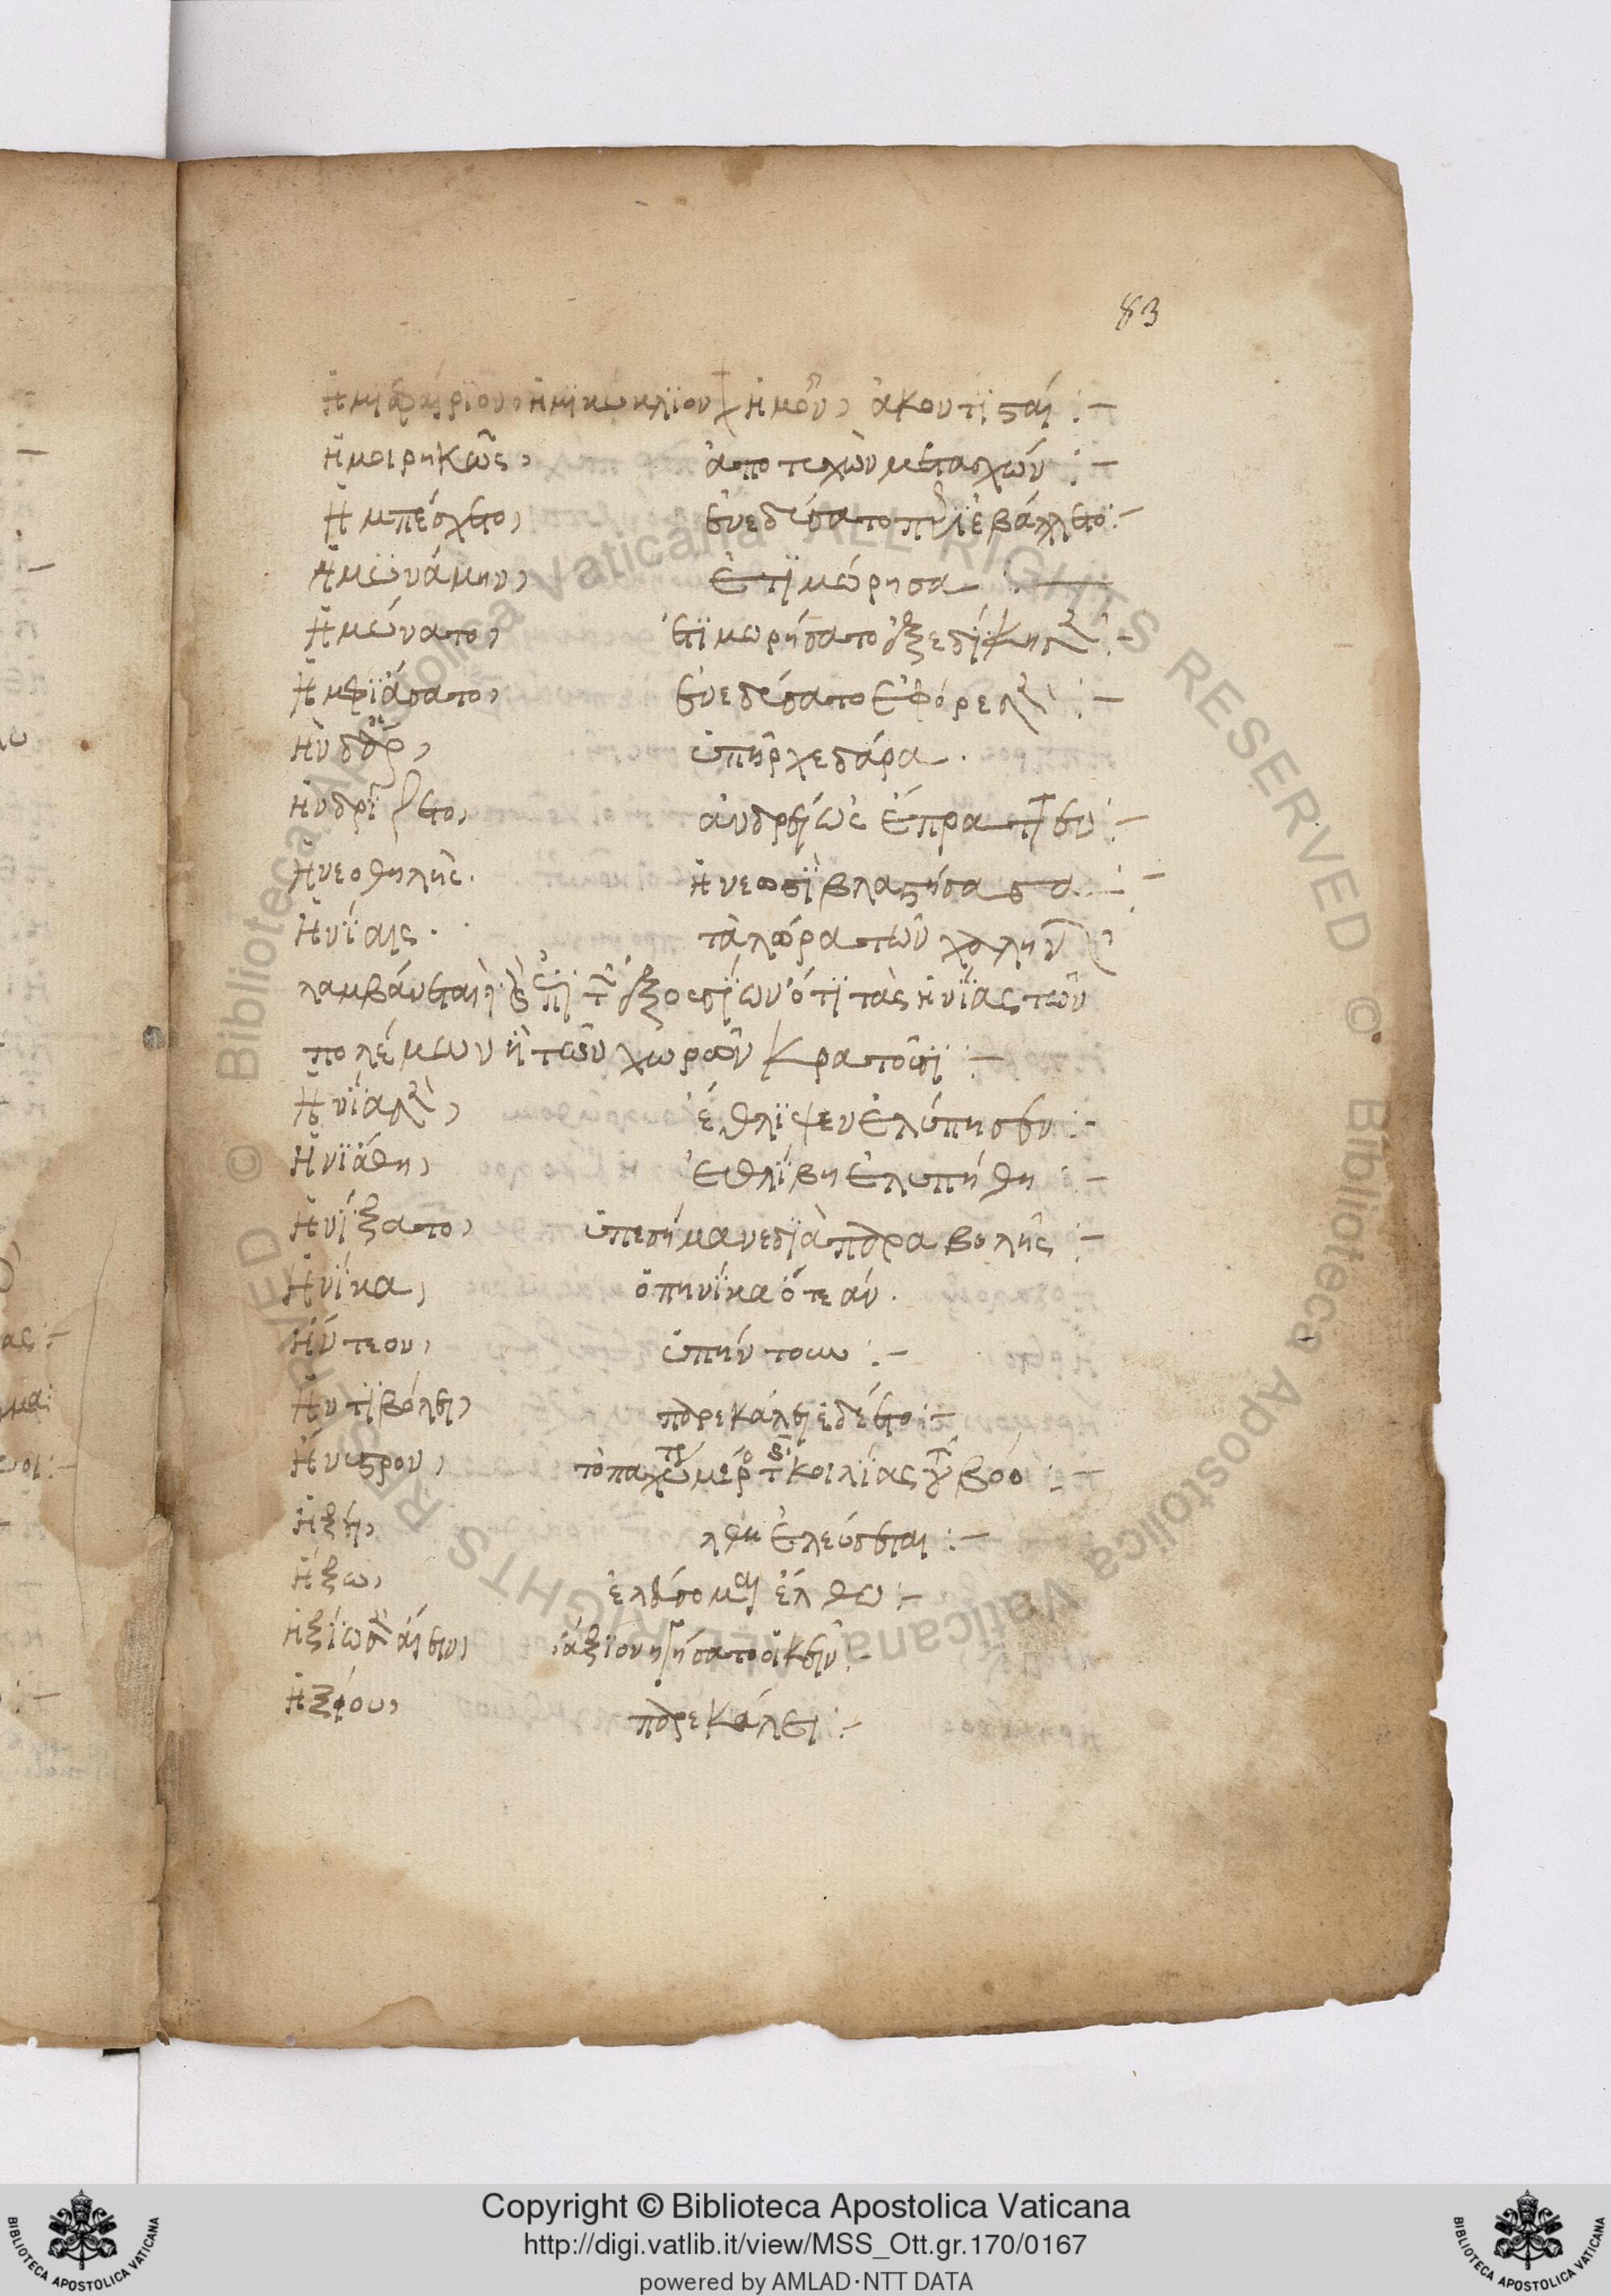 83
Ἡμϊσφαίρϊον, ἡμϊκύκλϊον ἡμῶν, ἀκοντϊσταί :-
ἡμοιρηκῶς, ἀποτυχὼν μετασχών :-
Ἡμπέσχετο, ἐνεδύσατο περϊεβάλλετο :-
Ἡμϋνάμην, ἐτϊμώρησα :-
Ἡμύνατο, ἐτϊμωρήσατο ἐξεδίκησεν :-
Ἡμφϊάσατο, ἐνεδύσατο ἐφόρεσεν :-
ὑπῆρχε δάρα .
ἡνδρίζετο, ἀνδρείως ἔπραττεν :-
Ἡνεοθηλὴς . ἡ νεωστὶ βλαστήσασα :-
Ἡνΐαις . τὰ λώρα τῶν χαλην
λαμβάνεται ἐπὶ τῶν ἐξοσϊῶν ὅτϊ τὰς ἡνΐας τῶν
πολέμων ἢ τῶν χωρῶν κρατοῦσϊ :-
Ἡνΐασεν, ἔθλϊψεν ἐλύπησεν :-
Ἡνϊάθη, ἐθλΐβη ἐλυπήθη :-
Ἡνΐξατο, ὑπεσήμανε δϊὰ παραβολῆς :-
Ἡνΐκα, ὁπηνΐκα ὅτε ἀν .
Ἡντεον, ὑπήντουν :-
Ἡντϊβόλει, παρεκάλει ἐδέετο :-
Ἤνυστρον, τὸ παχὺ μέρος τῆς κοιλΐας τοῦ βοὸ :-
Ἥξει, ἐλεύσεται :-
Ἥξω, ἐλεύσομαι ἔλθω :-
ἄξϊον ἡγήσατο οἰκεῖν :-
Ἡξίου, παρεκάλει :-
Copyright © Biblioteca Apostolica Vaticana
http://digi.vatlib.it/view/MSS_Ott.gr.170/0167
powered by AMLAD·NTT DATA
BIBLIOTECA APOSTOLICA VATICANA
BIBLIOTECA APOSTOLICA VATICANA